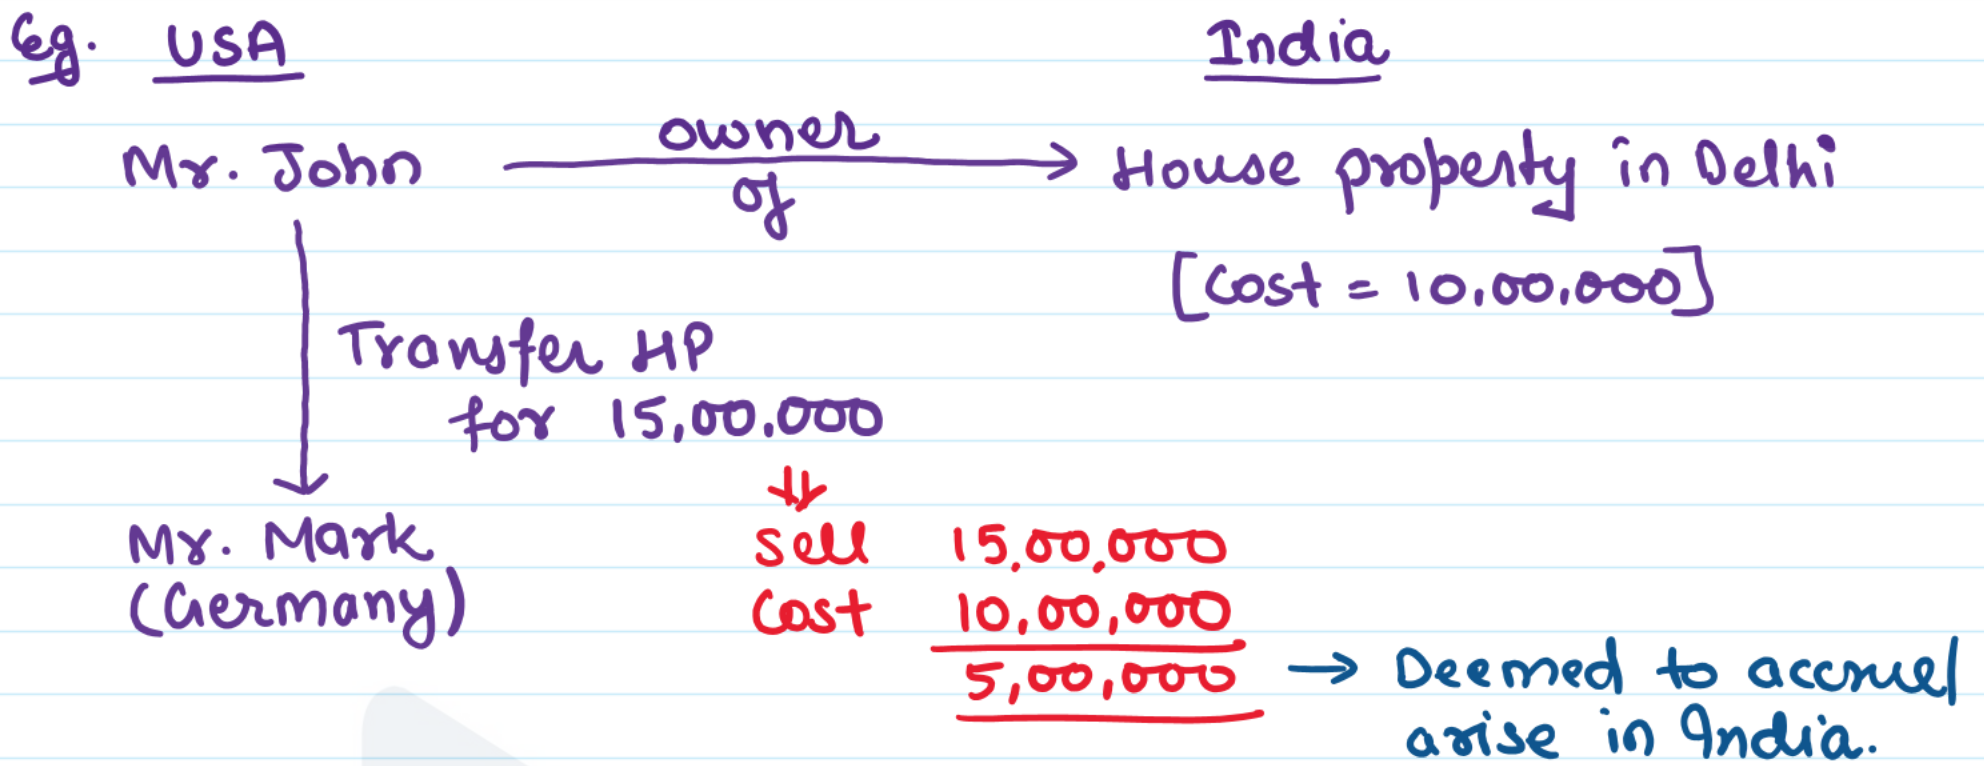 Eg. USA India
Mr. John owner of House property in Delhi
[Cost = 10,00,000]
Transfer HP
for 15,00,000
Mr. Mark
(Germany)
Sell 15,00,000
Cost 10,00,000
5,00,000 → Deemed to accrue/
arise in India.